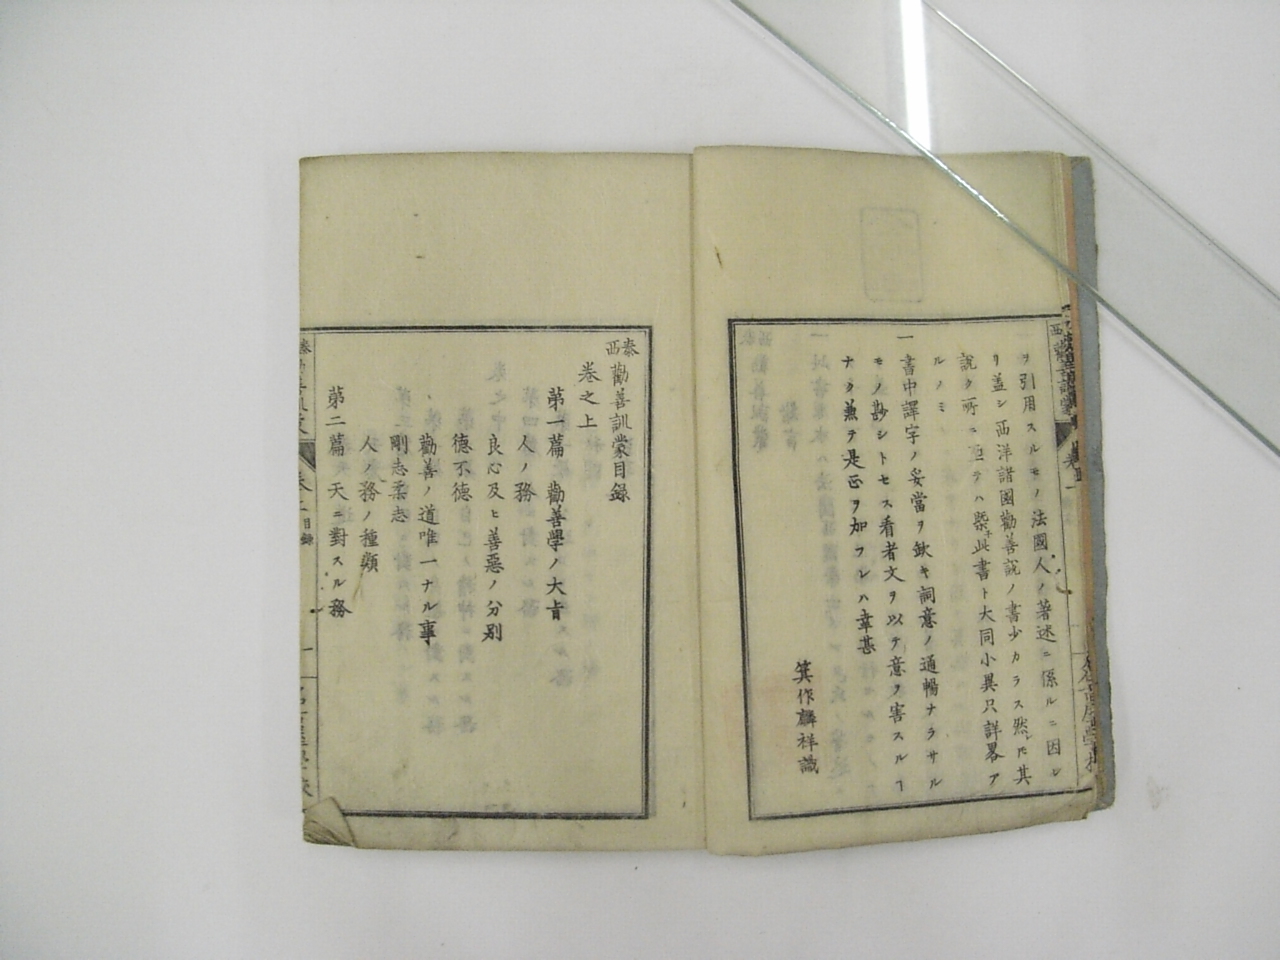 ヲ引用スルモノ法國人ノ著述ニ係ルニ因レ
リ蓋シ西洋諸國勸善説ノ書少カラス然ㇳモ其
説ク所ニ至テハ槩子此書ト大同小異只詳畧ア
ルノミ
一書中譯字ノ妥當ヲ欽キ詞意ノ通暢ナラサル
モノ尠シトセス看者文ヲ以テ意ヲ害スルヿ
ナク兼テ是正ヲ加フレハ幸甚
箕作麟祥識
泰西勸善訓蒙目録
卷之上
第一篇 勸善學ノ大旨
人ノ務
良心及ヒ善惡ノ分别
德不德
勸善ノ道唯一ナル事
剛志柔志
人ノ務ノ種類
第二篇 天ニ對スル務